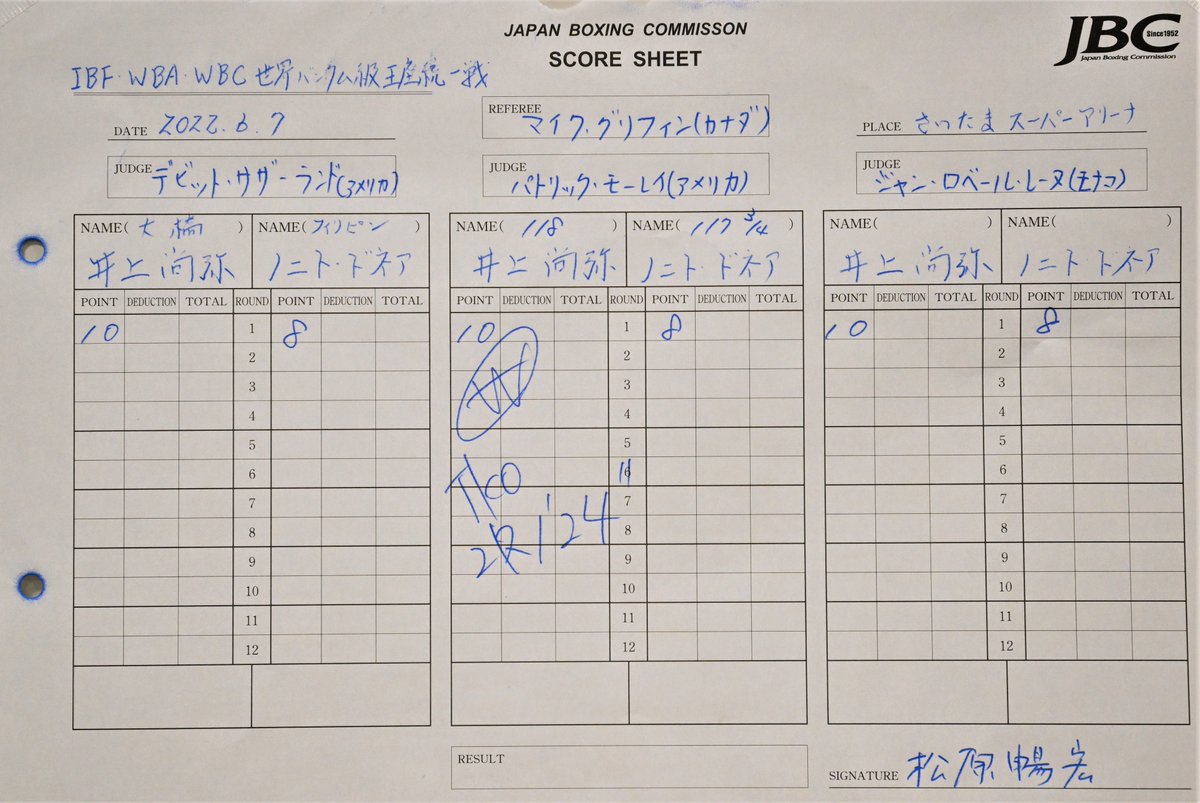 JAPAN BOXING COMMISSON
SCORE SHEET
JBC Since1952
Japan Boxing Commission
IBF・WBA・WBC 世界バンタム級王座統一戦
DATE 2022.6.7
REFEREE マイク・グリフィン(カナダ)
PLACE さいたまスーパーアリーナ
JUDGE デビット・サザーランド(アメリカ)
JUDGE パトリック・モーレイ(アメリカ)
JUDGE ジャン・ロベール・レーヌ(モナコ)
NAME(大橋) NAME(フィリピン) NAME(118) NAME(117 3/4) NAME( ) NAME( )
井上尚弥 ノニト・ドネア 井上尚弥 ノニト・ドネア 井上尚弥 ノニト・ドネア
POINT DEDUCTION TOTAL ROUND POINT DEDUCTION TOTAL POINT DEDUCTION TOTAL ROUND POINT DEDUCTION TOTAL POINT DEDUCTION TOTAL ROUND POINT DEDUCTION TOTAL
10 1 8 10 1 8 10 1 8
2 2 2
W
3 3 3
4 4 4
5 5 5
6 6 6
TKO
7 7 7
2R 1'24
8 8 8
9 9 9
10 10 10
11 11 11
12 12 12
RESULT
SIGNATURE 松原暢宏